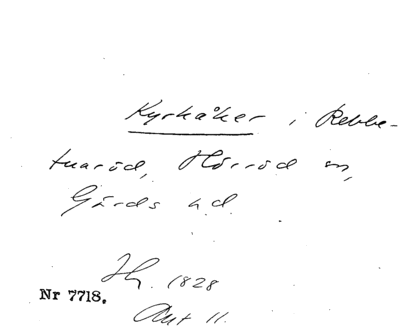 Kyrkåker i Rebbe-
tuaröd, Hörröd sn,
Gärds hd.
Hy. 1828
Nr 7718.
Akt 11.